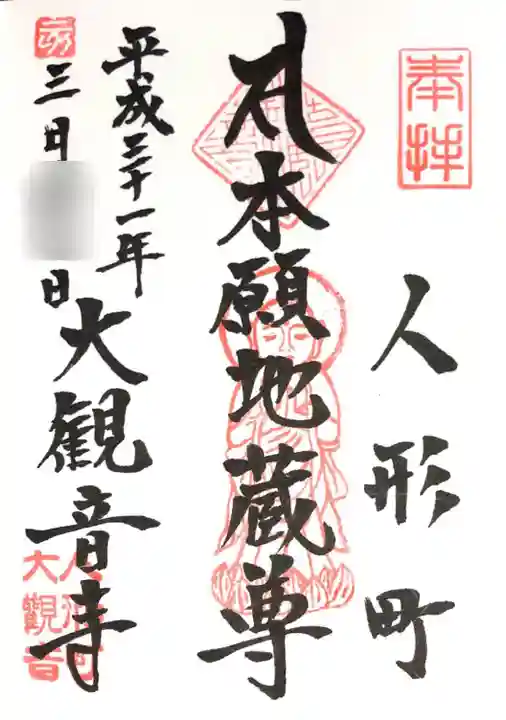 奉拝
人形町
本願地蔵尊
平成三十一年
三月
日
大観音寺
人形町
大観音